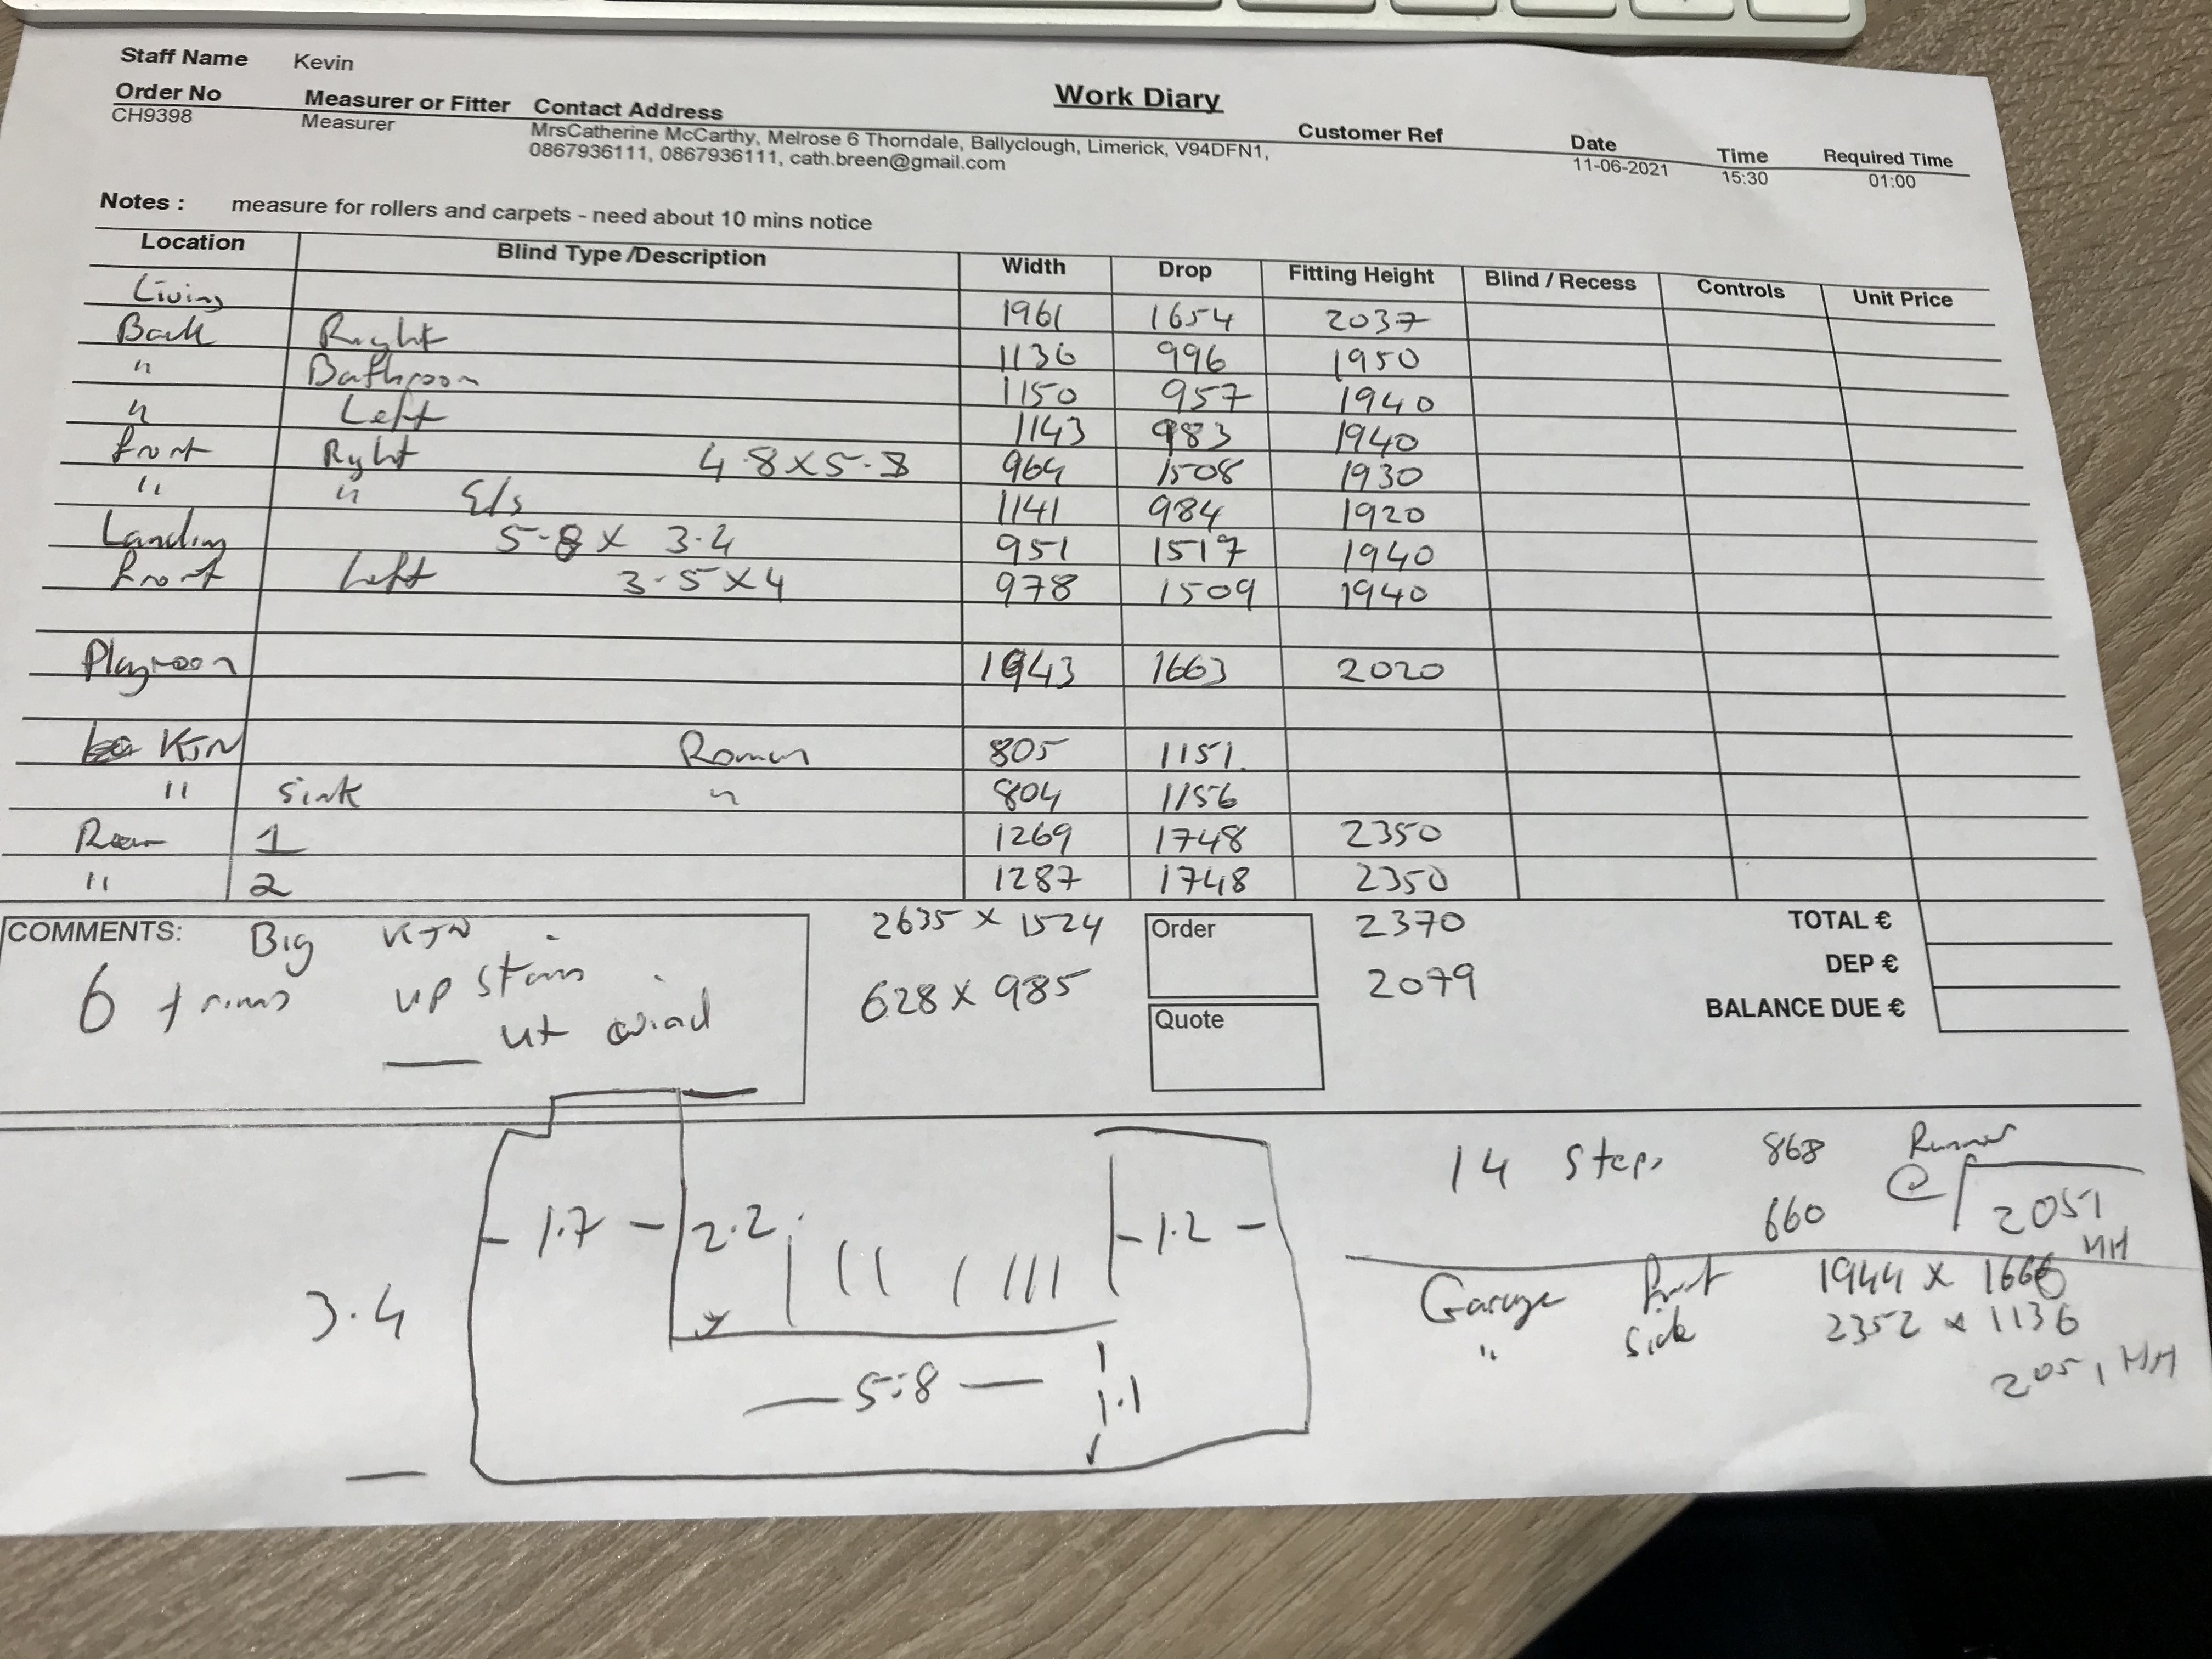 Staff Name Kevin
Work Diary
Order No Measurer or Fitter Contact Address Customer Ref Date Time Required Time
CH9398 Measurer MrsCatherine McCarthy, Melrose 6 Thorndale, Ballyclough, Limerick, V94DFN1, 11-06-2021 15:30 01:00
0867936111, 0867936111, cath.breen@gmail.com
Notes : measure for rollers and carpets - need about 10 mins notice
Location Blind Type /Description Width Drop Fitting Height Blind / Recess Controls Unit Price
Living 1961 1654 2037
Back Right 1136 996 1950
" Bathroom 1150 957 1940
" Left 1143 983 1940
front Right 4.8 x 5.8 964 1508 1930
" " E/s 1141 984 1920
Landing 5.8 x 3.4 951 1517 1940
front Left 3.5 x 4 978 1509 1940
Playroom 1943 1663 2020
KTN Roman 805 1151
" Sink " 804 1156
Rear 1 1269 1748 2350
" 2 1287 1748 2350
COMMENTS: Big KTN 2635 x 1524 Order 2370 TOTAL €
6 trims up stairs 628 x 985 2079 DEP €
ut Quote BALANCE DUE €
14 Steps 868 Runner
660 @ 2051 MH
1.7 2.2 1.2
3.4
5.8
1.1
Garage front 1944 x 1666
" Side 2352 x 1136
2051 MH